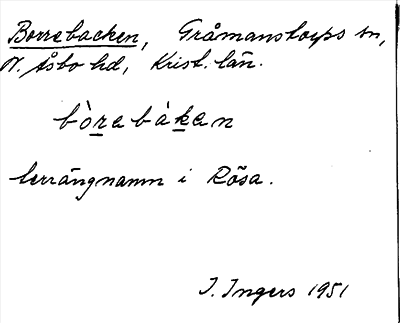 Borrebacken, Gråmanstorps sn,
N. Åsbo hd, Krist. län.
bòrebàken
terrängnamn i Rösa.
I. Ingers 1951